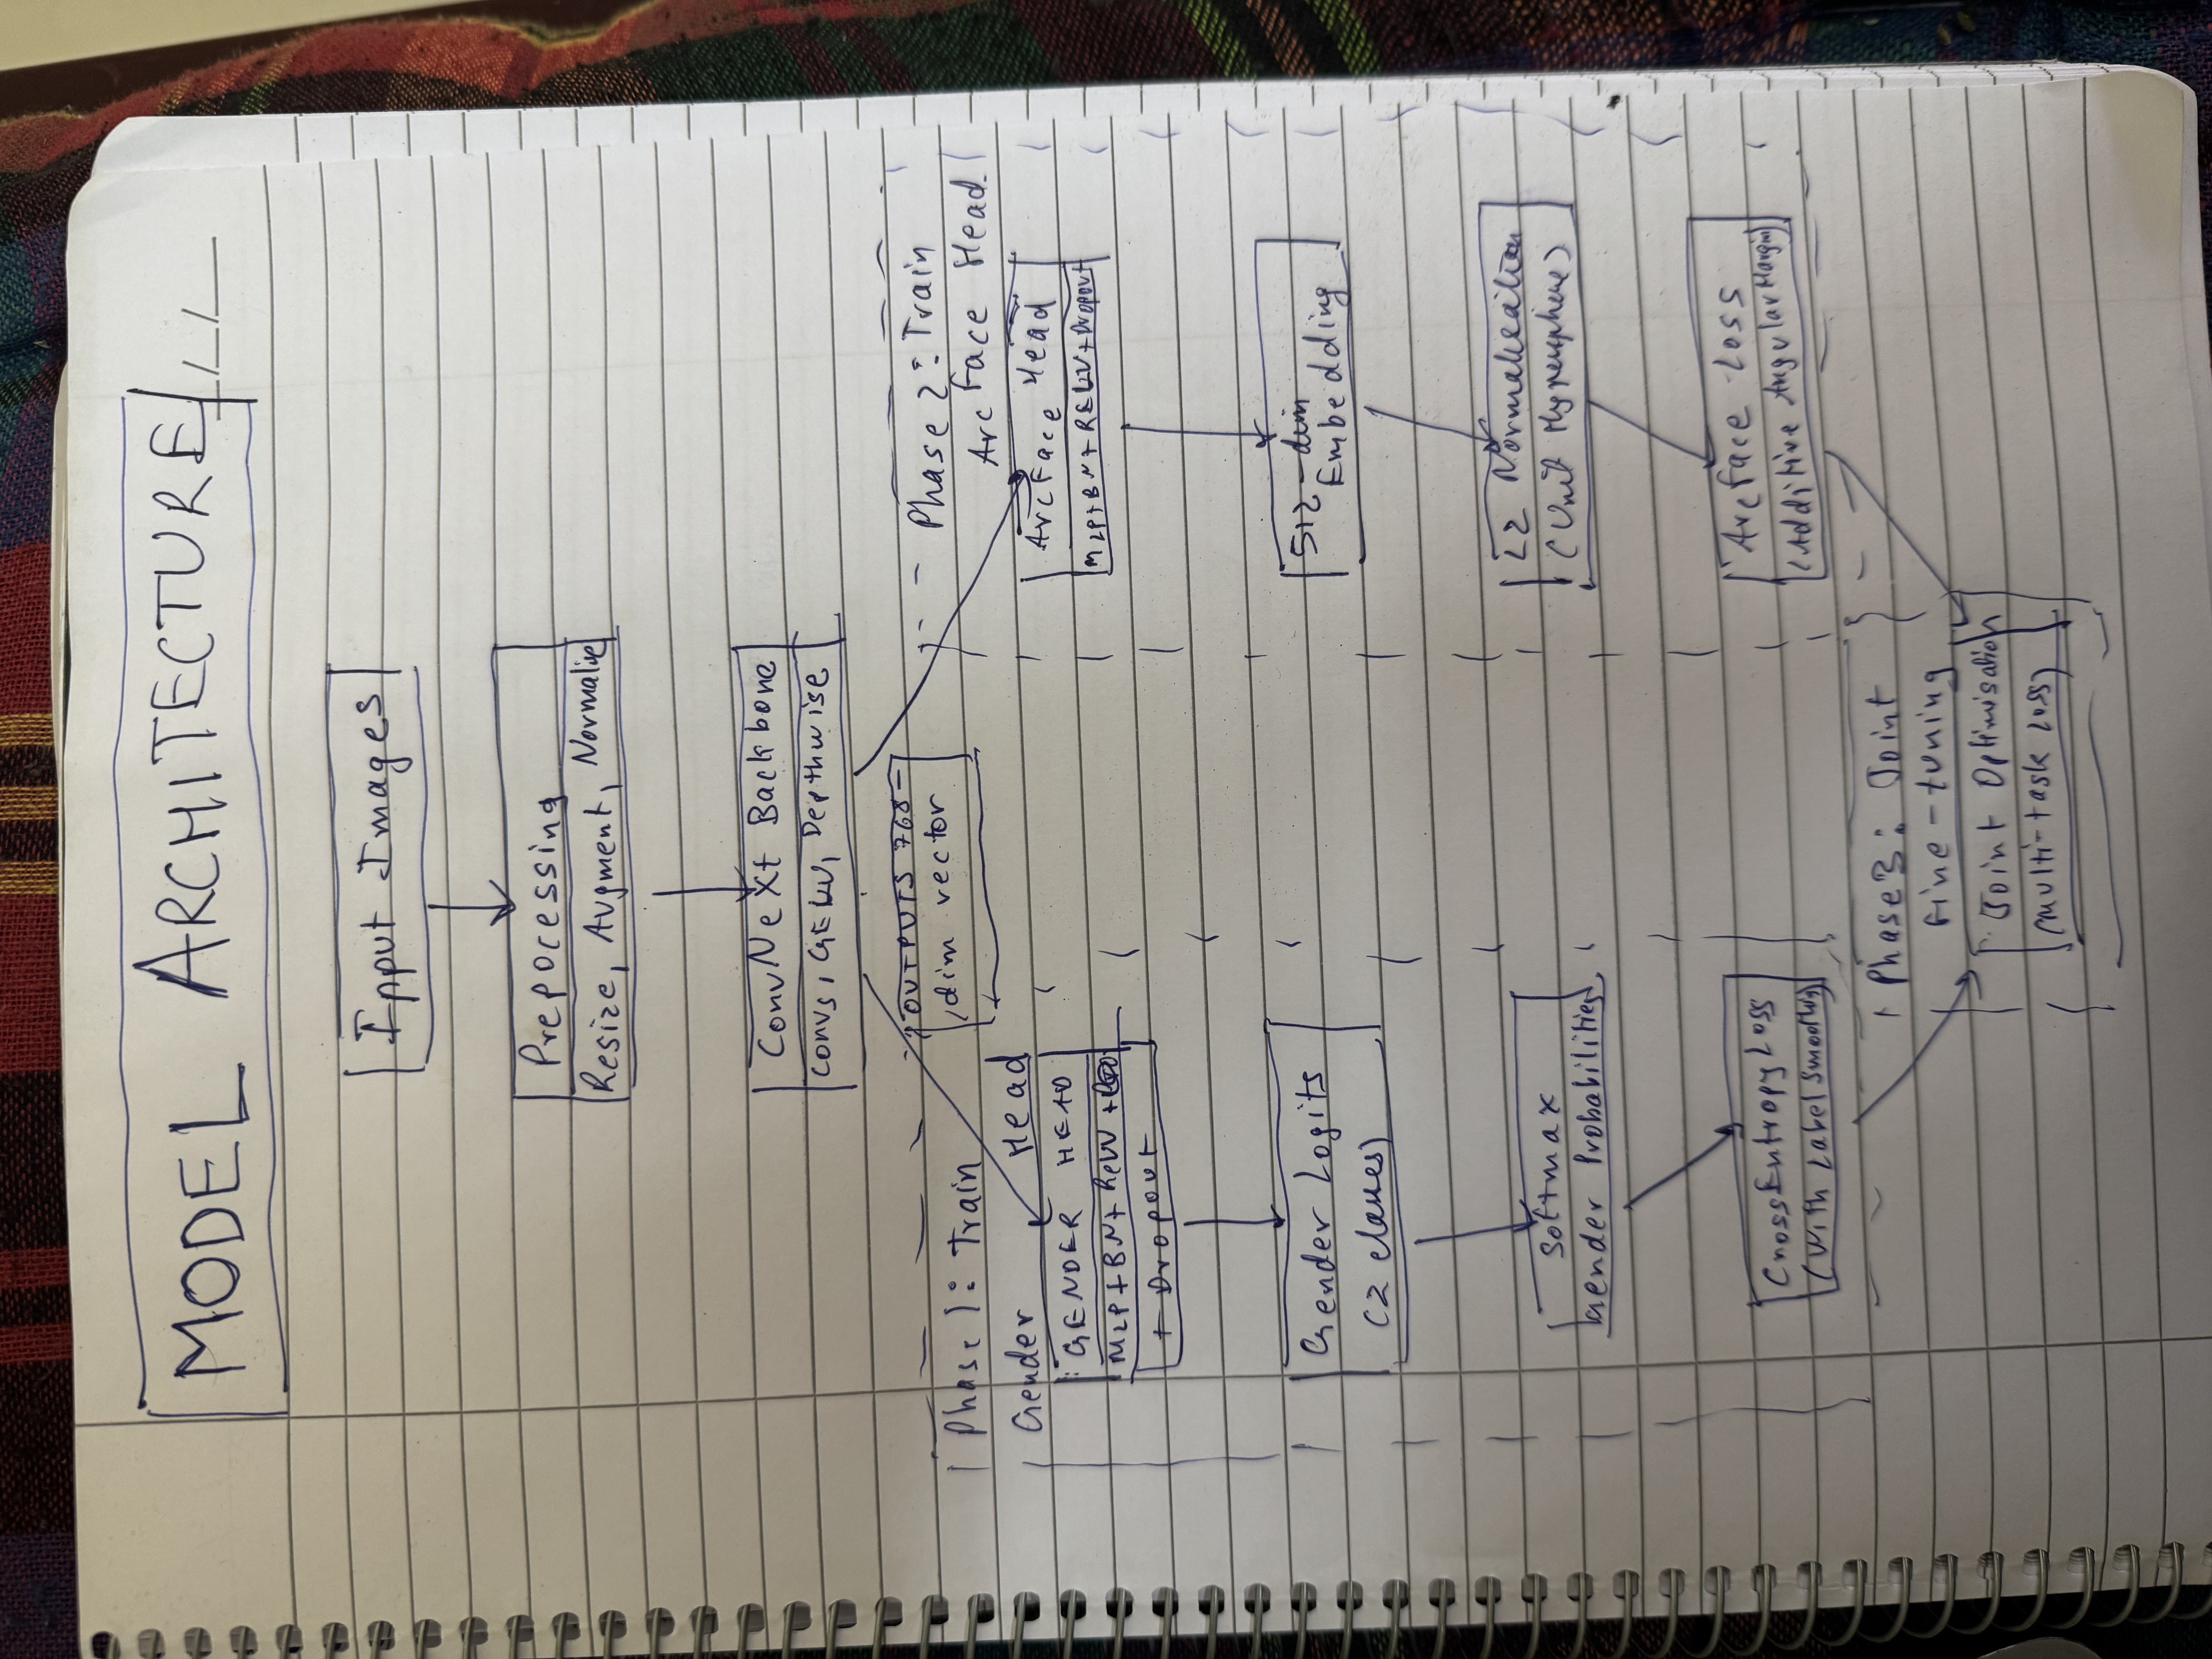 MODEL ARCHITECTURE
Input Images
Prepocessing
Resize, Augment, Normalise
ConvNeXt Backbone
Convs, GELU, Depthwise
OUTPUTS 768-
dim vector
Phase 1: Train
Gender Head
GENDER HEAD
MLP+BN+ReLU+
+ Dropout
Gender Logits
(2 classes)
Softmax
Gender Probabilities
CrossEntropy Loss
(With Label Smoothing)
Phase 2: Train
ArcFace Head
ArcFace Head
MLP+BN+RELU+Dropout
512-dim
Embedding
L2 Normalisation
(Unit Hypersphere)
ArcFace Loss
(Additive Angular Margin)
Phase 3: Joint
fine-tuning
Joint Optimisation
(Multi-task Loss)